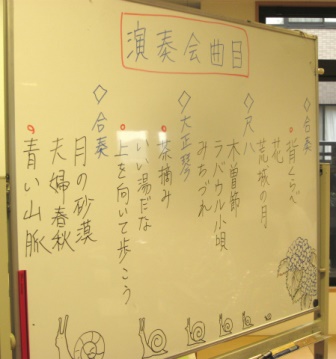 演奏会曲目
◇合奏
背くらべ
花
荒城の月
◇尺八
木曽節
ラバウル小唄
みちづれ
◇大正琴
茶摘み
いい湯だな
上を向いて歩こう
◇合奏
月の砂漠
夫婦春秋
青い山脈